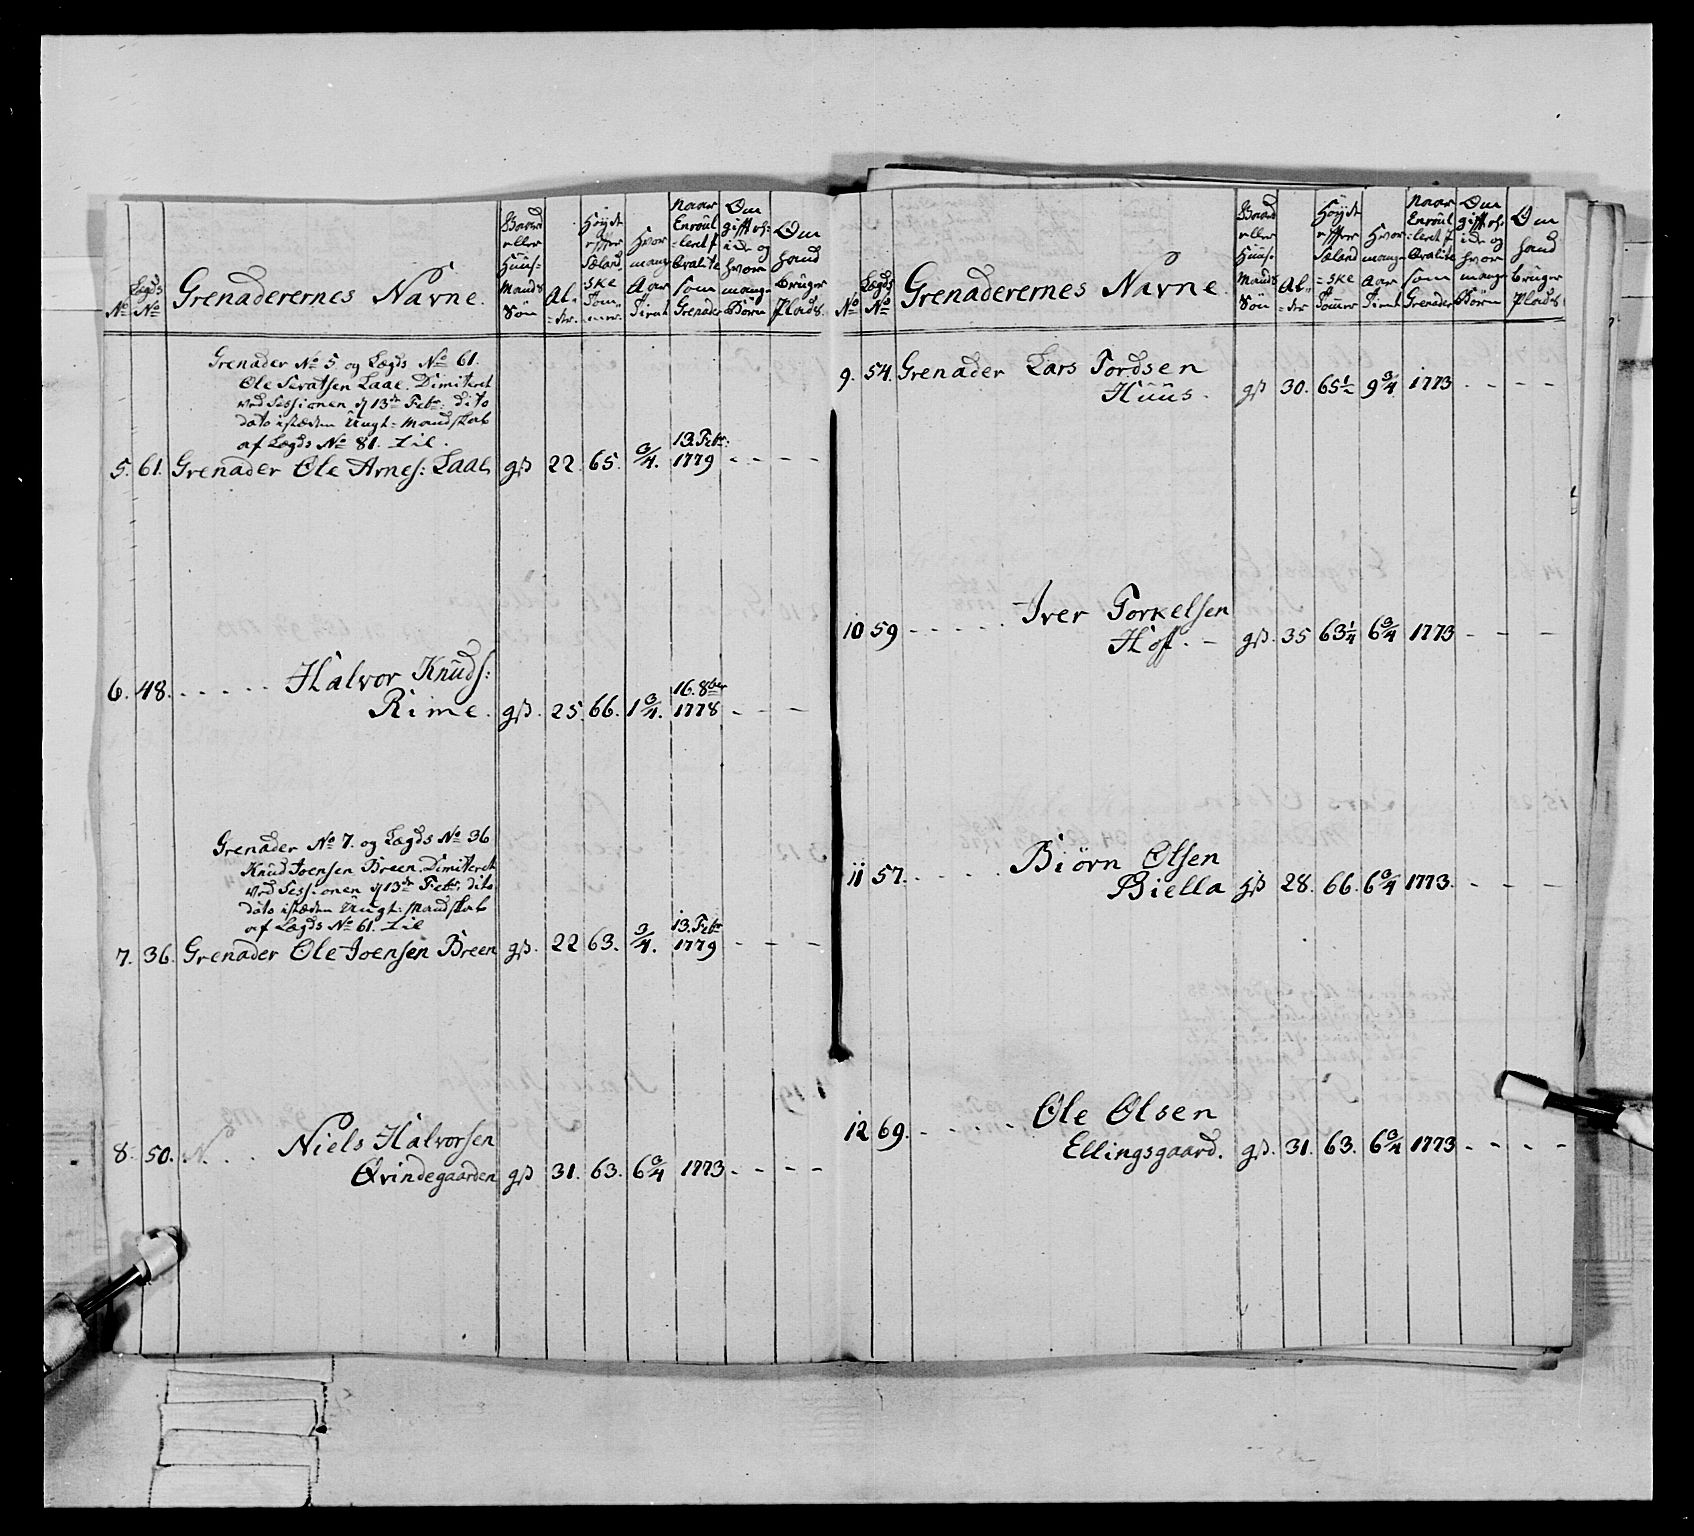 No
Lægds No
Grenaderernes Navne.
Bonde eller Huus-Mands Søn
Al-der.
Høyde efter Sælandske Tommer.
Hvor mange Aar Tient
Naar Enroulleret i Qvalite som Grenader
Om gifft ell: ide og hvor mange Børn
Om hand bruger Plads.
Grenader No 5. og Lægds No 61.
Ole Laae. Dimiteret
ved Sessionen d 13de Febr: dito
dato istæden Ungt: Mandskab
af Lægds No 81. til.
5. 61. Grenader Ole Arnes: Laae gß 22 65. 3/4. 13. Febr: 1779 - - - -
6. 48. - - - - - Halvor Knuds:
Rime. gß. 25. 66. 1 3/4. 16. 8ber 1778 - - -
Grenader No 7. og Lægds No 36
Knud Joensen Breen. Dimiteret
ved Sessionen d 13de Febr. dito
dato istæden Ungt: Mandskab
af Lægds No 61. til
7. 36. Grenader Ole Joensen Breen gß. 22 63. 3/4. 13. Febr 1779 - - -
8. 50. N. - - - Niels Halvorsen
Qvindegaarden gß 31. 63. 6 3/4 1773 - - - -
No
Lægds No
Grenaderernes Navne.
Bonde eller Huus-Mands Søn
Al-der
Høyde efter Sælandske Tommer
Hvor mange Aar Tient
Naar Enroulleret i Qvalite som Grenader
Om gifft ell: ide og hvor mange Børn
Om hand bruger Plads
9. 54. Grenader Lars Tordsen
Huus. gß 30. 65 1/2 9 3/4 1773 - - - -
10 59 - - - - - Iver Torkelsen
Hof. - gß. 35 63 1/4 6 3/4 1773 - - -
11 57. - - - - - Biörn Olsen
Biella gß 28. 66. 6 3/4 1773. - - -
12 69. - - - - - Ole Olsen
Ellingsgaard. gß. 31. 63. 6 3/4 1773 - - - -